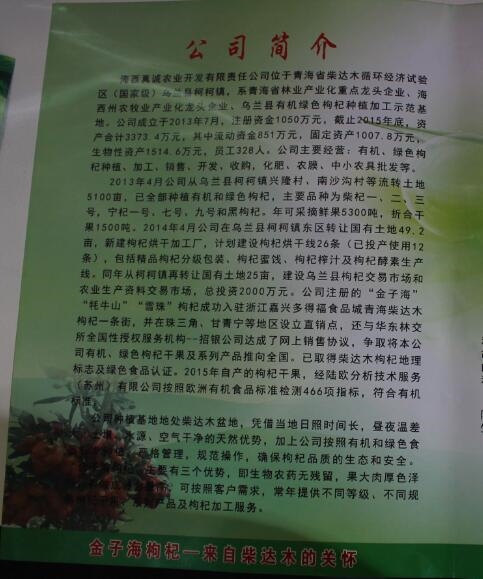 公司简介
海西真诚农业开发有限责任公司位于青海省柴达木循环经济试验
区（国家级）乌兰县柯柯镇，系青海省林业产业化重点龙头企业、海
西州农牧业产业化龙头企业、乌兰县有机绿色枸杞种植加工示范基
地。公司成立于2013年7月，注册资金1050万元，截止2015年底，资
产合计3373.4万元，其中流动资金851万元，固定资产1007.8万元，
生物性资产1514.6万元，员工328人。公司主要经营：有机、绿色枸
杞种植、加工、销售、开发、收购，化肥、农膜、中小农具批发等。
2013年4月公司从乌兰县柯柯镇兴隆村、南沙沟村等流转土地
5100亩，已全部种植有机和绿色枸杞，主要品种为柴杞一、二、三
号，宁杞一号、七号、九号和黑枸杞。年可采摘鲜果5300吨，折合干
果1500吨。2014年4月公司在乌兰县柯柯镇东区转让国有土地49.2
亩，新建枸杞烘干加工厂，计划建设枸杞烘干线26条（已投产使用12
条），包括精品枸杞分级包装、枸杞蜜饯、枸杞榨汁及枸杞酵素生产
线。同年从柯柯镇再转让国有土地25亩，建设乌兰县枸杞交易市场和
农业生产资料交易市场，总投资2000万元。公司注册的“金子海”
“牦牛山”“雪珠”枸杞成功入驻浙江嘉兴多得福食品城青海柴达木
枸杞一条街，并在珠三角、甘青宁等地区设立直销点，还与华东林交
所全国性授权服务机构--招银公司达成了网上销售协议，争取将本公
司有机、绿色枸杞干果及系列产品推向全国。已取得柴达木枸杞地理
标志及绿色食品认证。2015年自产的枸杞干果，经陆欧分析技术服务
（苏州）有限公司按照欧洲有机食品标准检测466项指标，符合有机
标准。
公司种植基地地处柴达木盆地，凭借当地日照时间长，昼夜温差
水源、空气干净的天然优势，加上公司按照有机和绿色食
严格管理，规范操作，确保枸杞品质的生态和安全。
主要有三个优势，即生物农药无残留，果大肉厚色泽
可按照客户需求，常年提供不同等级、不同规
产品及枸杞加工服务。
金子海枸杞—来自柴达木的关怀